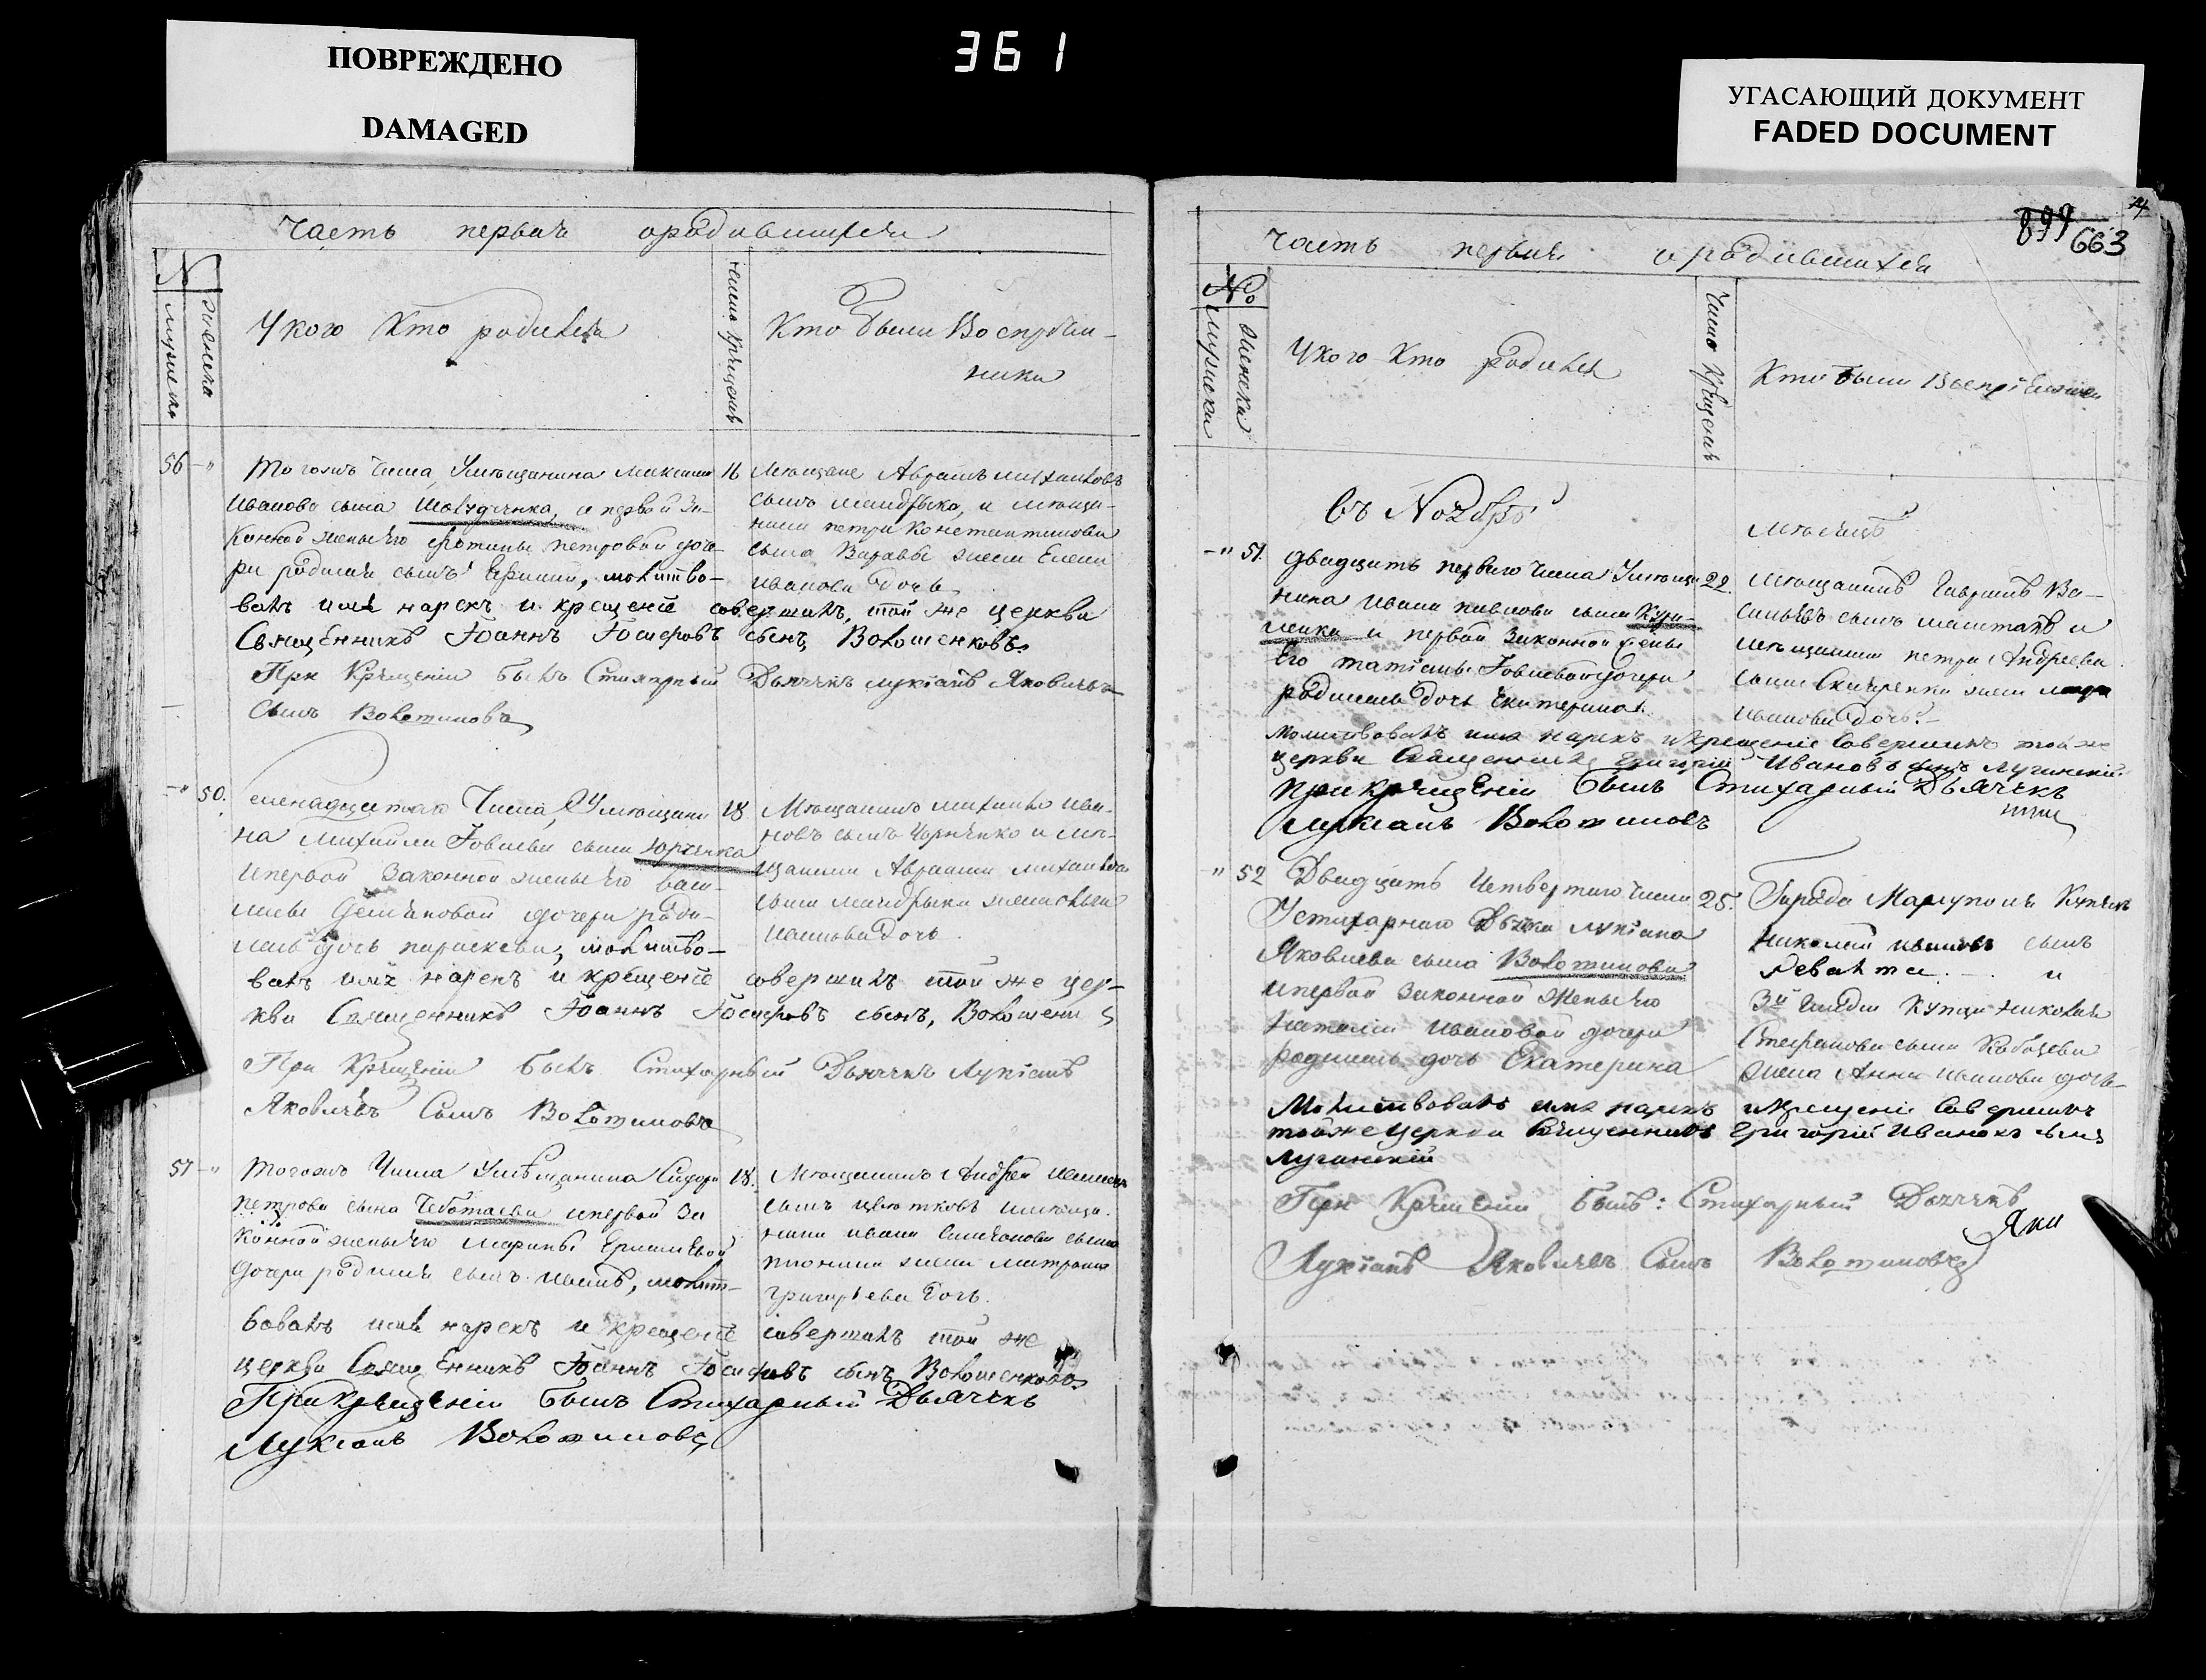 ПОВРЕЖДЕНО
DAMAGED
361
УГАСАЮЩИЙ ДОКУМЕНТ
FADED DOCUMENT
часть первая ородившихся
N
мужеска
женска
У кого кто родился
число крещенія
Кто были Воспрѣем-
ники
56 -"
Тогожъ числа, Умѣщанина Максима
Иванова сына и первой За-
конной жены его петровой доче-
ри родился сынъ Ефимій, молитво-
валъ имя нарекъ и крещеніе совершилъ, той же церкви
Священникъ Іоаннъ Іосифовъ сынъ, Волошенковъ
При Крещеніи былъ Стихарный Дьячекъ лукіанъ Яковлевъ
Сынъ Волотиновъ
16
Мѣщане Аврамъ михайловъ
сынъ мандрыка, и мѣща-
нина петра Константинова
сына Варавы жена Елена
иванова дочь
-" 50.
числа, Умѣщани
на Михайла Іовлева сына Юрченка
ипервой Законной жены его васи-
лисы Демьяновой дочери роди-
лась дочь параскева, молитво-
валъ имя нарекъ и крещеніе совершилъ той же цер-
кви Священникъ Іоаннъ Іосифовъ сынъ, Волошенк
При Крещеніи былъ Стихарный Дьячекъ Лукіанъ
Яковлевъ Сынъ Волотиновъ
18
Мѣщанинъ михайло ива-
новъ сынъ Черненко и мѣ-
щанина Авраама михайлова
сына мандрыки жена
иванова дочь.
57 -"
Тогожъ Числа Умѣщанина Сидора
петрова сына Чеботаева ипервой За
конной жены его марины Ермилевой
дочери родился сынъ иванъ, молит-
вовалъ имя нарекъ и крещеніе совершилъ той же
церкви Священникъ Іоаннъ Іосифовъ сынъ Волошенковъ.
При Крещеніи былъ Стихарный Дьячекъ
Лукіанъ Волотиновъ
18.
Мѣщанинъ Андрей
сынъ цвѣтковъ имѣща-
нина ивана сына
жена митрона
григорьева дочь.
897
663
часть первая ородившихся
№
мужеска
женска
У кого кто родился
Число крещенія
Кто были Воспріемники
въ Ноябрѣ мѣсяцѣ
-" 51.
двадцать перваго числа Умѣща
нина ивана павлова сына
и первой законной жены
Его татіаны Іовлевой дочери
родилась дочь Екатерина.
молитвовалъ имя нарекъ икрещеніе Совершилъ той же
церкви Священникъ Григорій Ивановъ сынъ Лучинскій
При крещеніи былъ Стихарный Дьячекъ
Лукіанъ Волотиновъ
22.
мѣщанинъ Гавріилъ Ва-
сильевъ сынъ и
мѣщанина петра Андреева
сына жена
иванова дочь.-
" 52
Двадцать Четвертаго числа
Устихарнаго Дьячка лукіана
Яковлева сына Волотинова
ипервой Законной Жены его
наталіи ивановой дочери
родилась дочь Екатерина
Молитвовалъ имя нарекъ икрещеніе Совершилъ
тойже церкви Священникъ Григорій Ивановъ сынъ
Лучинскій
При Крещеніи былъ: Стихарный Дьячекъ
Лукіанъ Яковлевъ Сынъ Волотиновъ
25.
Города Маріуполь Купецъ
николай ивановъ сынъ
и
3й гильдіи купца николая
Стефанова сына
жена Анна иванова дочь